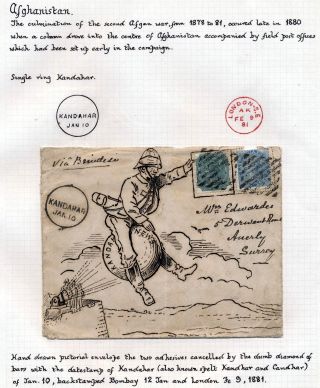 Afghanistan.
The culmination of the second Afgan war, from 1878 to 81, occured late in 1880
when a column drove into the centre of Afghanistan accompanied by field post offices
which had been set up early in the campaign.
Single ring Kandahar.
KANDAHAR
JAN 10
LONDON S.E
AK
FE 9
81
Via Brindisi
KANDAHAR
JAN. 10
Mrs Edwardes
5 Derwent Road
Anerly
Surrey
Hand drawn pictorial envelope the two adhesives cancelled by the dumb diamond of
bars with the datestamp of Kandahar (also known spelt Kandhar and Candhar)
of Jan 10, backstamped Bombay 12 Jan and London Fe 9, 1881.